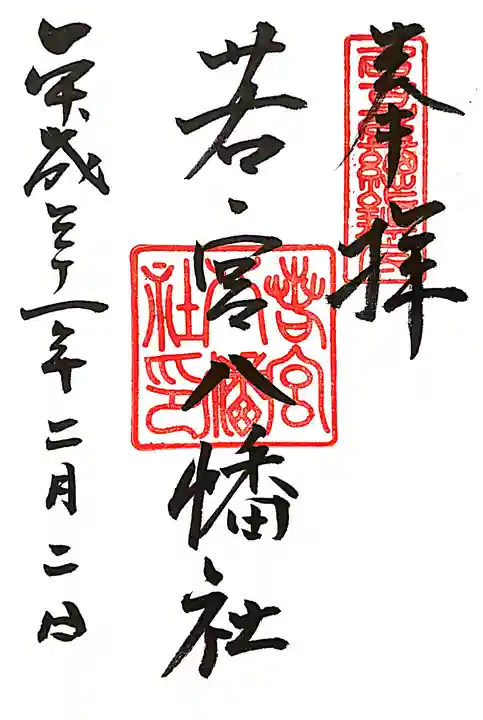 奉拝
若宮八幡社
若宮
八幡
社印
平成三十一年二月二日